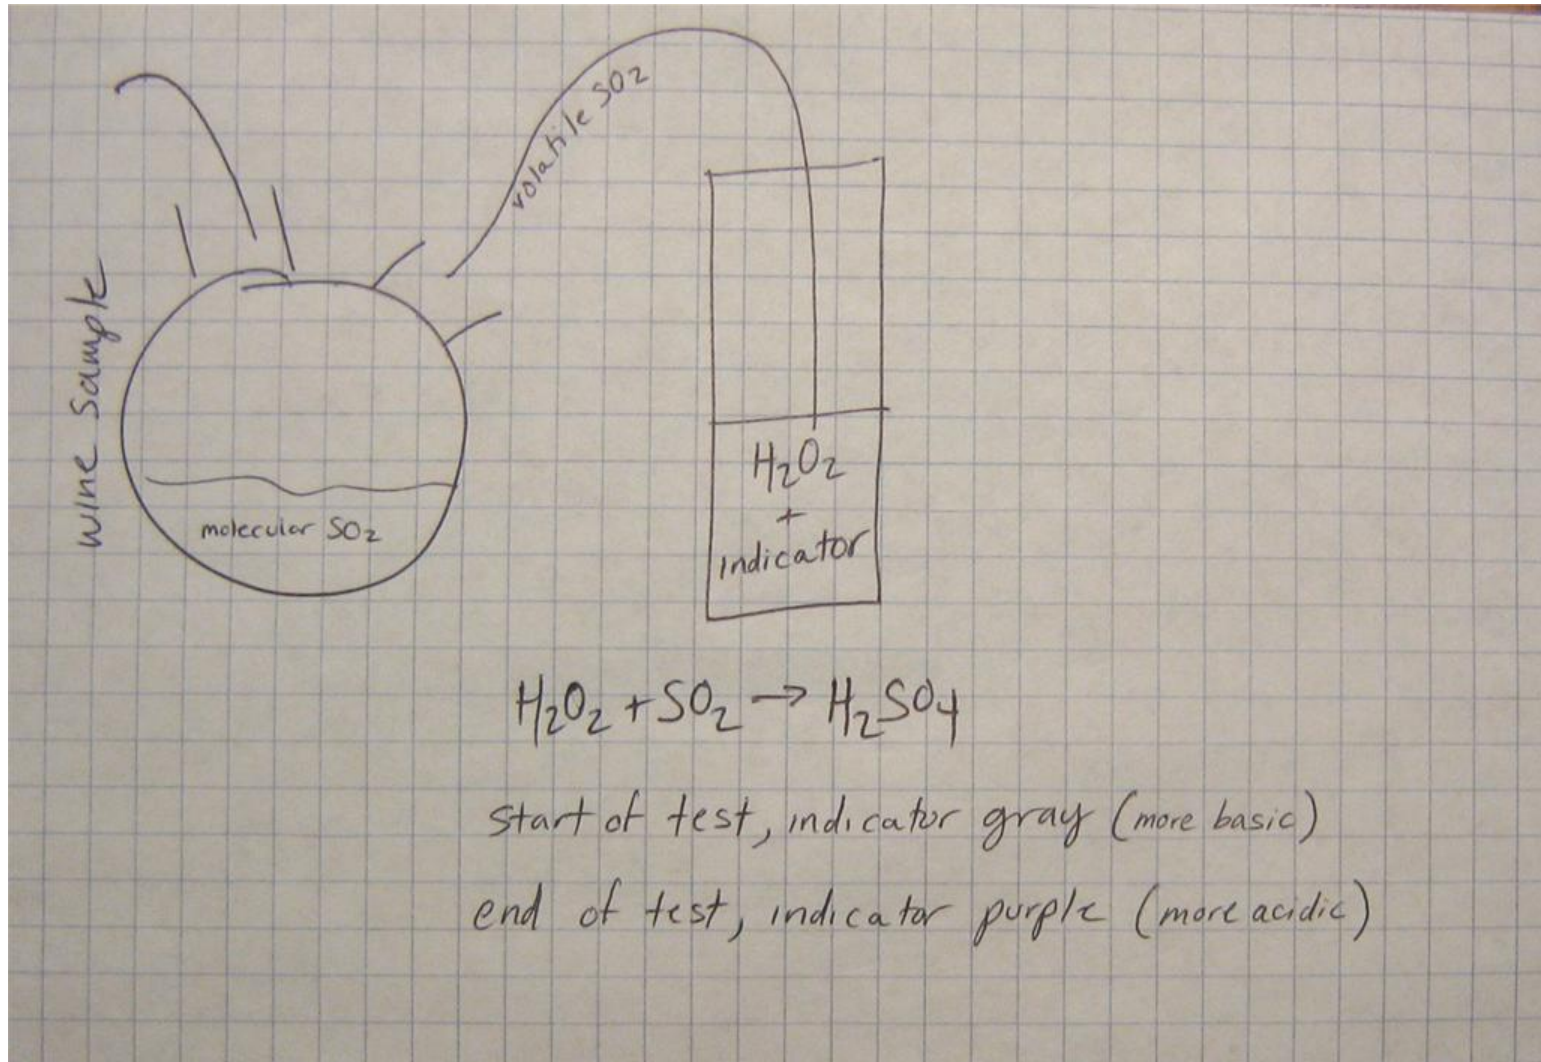 volatile SO2
wine sample
molecular SO2
H2O2
+
indicator
H2O2 + SO2 → H2SO4
start of test, indicator gray (more basic)
end of test, indicator purple (more acidic)